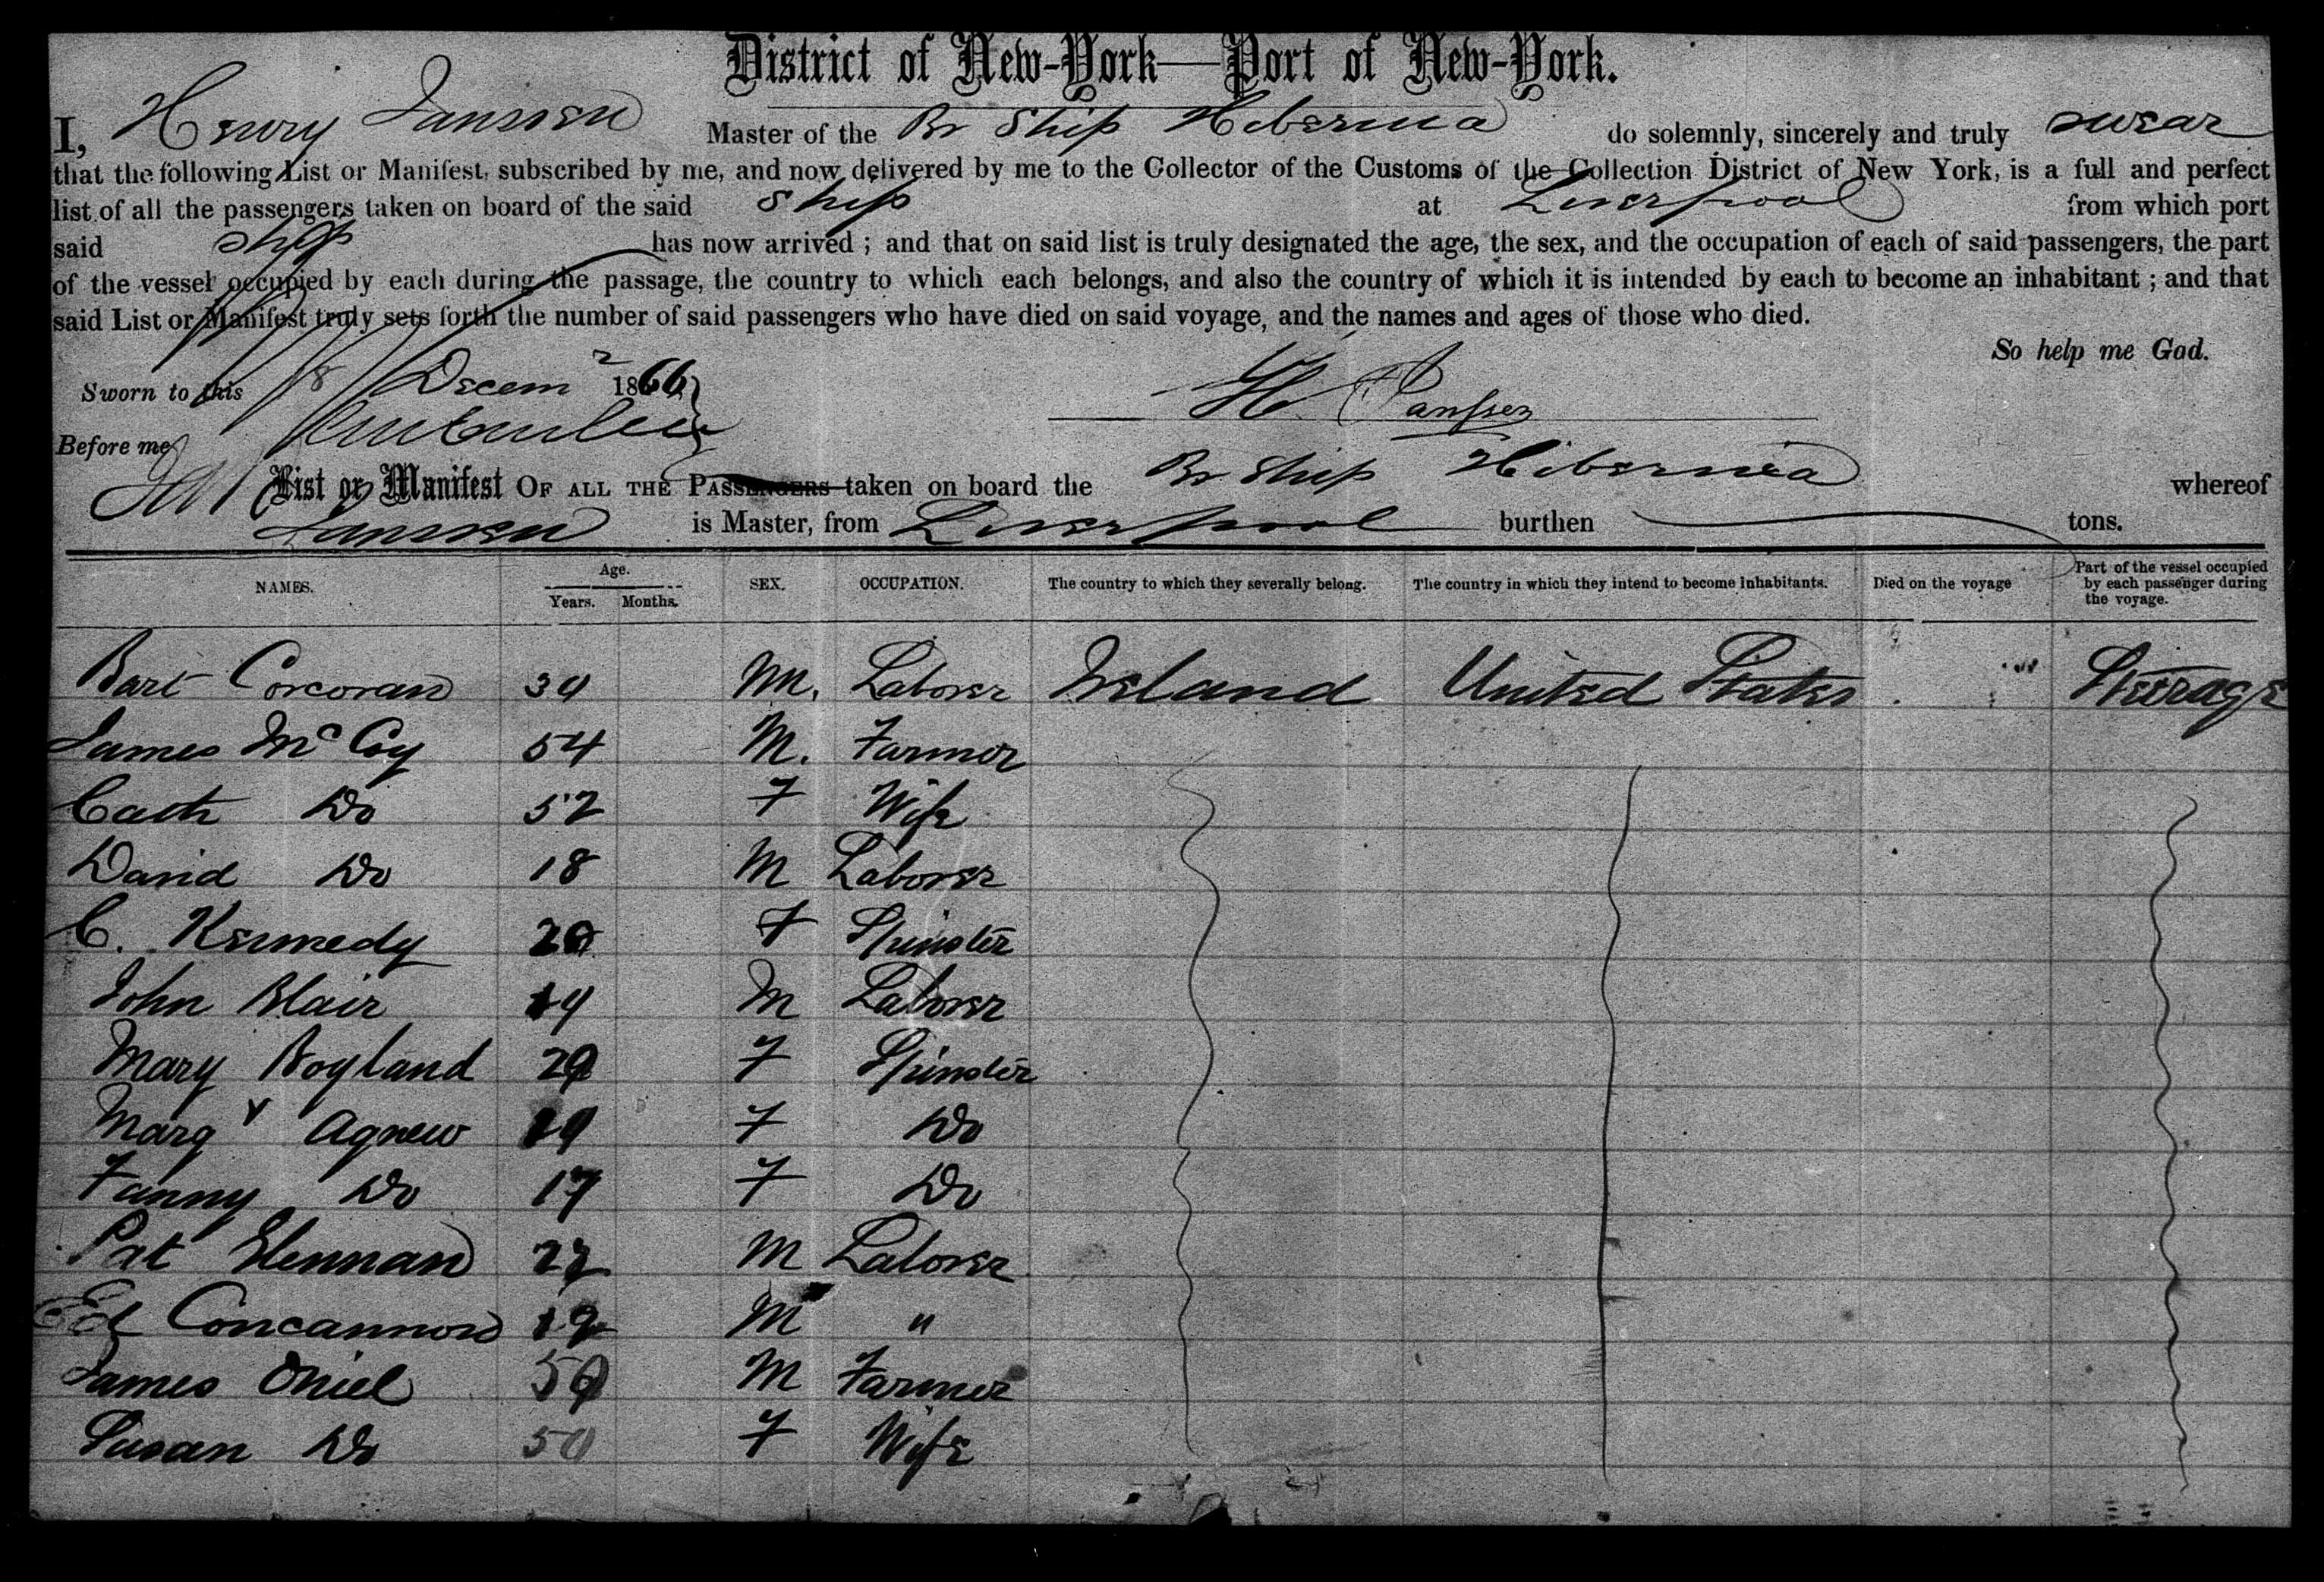 District of New-York—Port of New-York.
I, Henry Janssen Master of the Br Ship Hibernia do solemnly, sincerely and truly swear
that the following List or Manifest, subscribed by me, and now delivered by me to the Collector of the Customs of the Collection District of New York, is a full and perfect
list of all the passengers taken on board of the said Ship at Liverpool from which port
said Ship has now arrived ; and that on said list is truly designated the age, the sex, and the occupation of each of said passengers, the part
of the vessel occupied by each during the passage, the country to which each belongs, and also the country of which it is intended by each to become an inhabitant ; and that
said List or Manifest truly sets forth the number of said passengers who have died on said voyage, and the names and ages of those who died.
So help me God.
Sworn to this 18 Decemr 1866
H. Janssen
Before me
List or Manifest OF ALL THE PASSENGERS taken on board the Br Ship Hibernia whereof
Janssen is Master, from Liverpool burthen tons.
NAMES. Age. Years. Months. SEX. OCCUPATION. The country to which they severally belong. The country in which they intend to become inhabitants. Died on the voyage Part of the vessel occupied by each passenger during the voyage.
Bart Corcoran M. Laborer Ireland United States Steerage
James McCoy 54 M. Farmer
Cath Do 52 F Wife
David Do 18 M Laborer
C. Kennedy 20 F Spinster
John Blair 19 M Laborer
Mary Boyland 20 F Spinster
Margt Agnew 19 F Do
Fanny Do 17 F Do
Pat M Laborer
Ed Concannon M "
James Oniel 50 M Farmer
Susan Do 50 F Wife